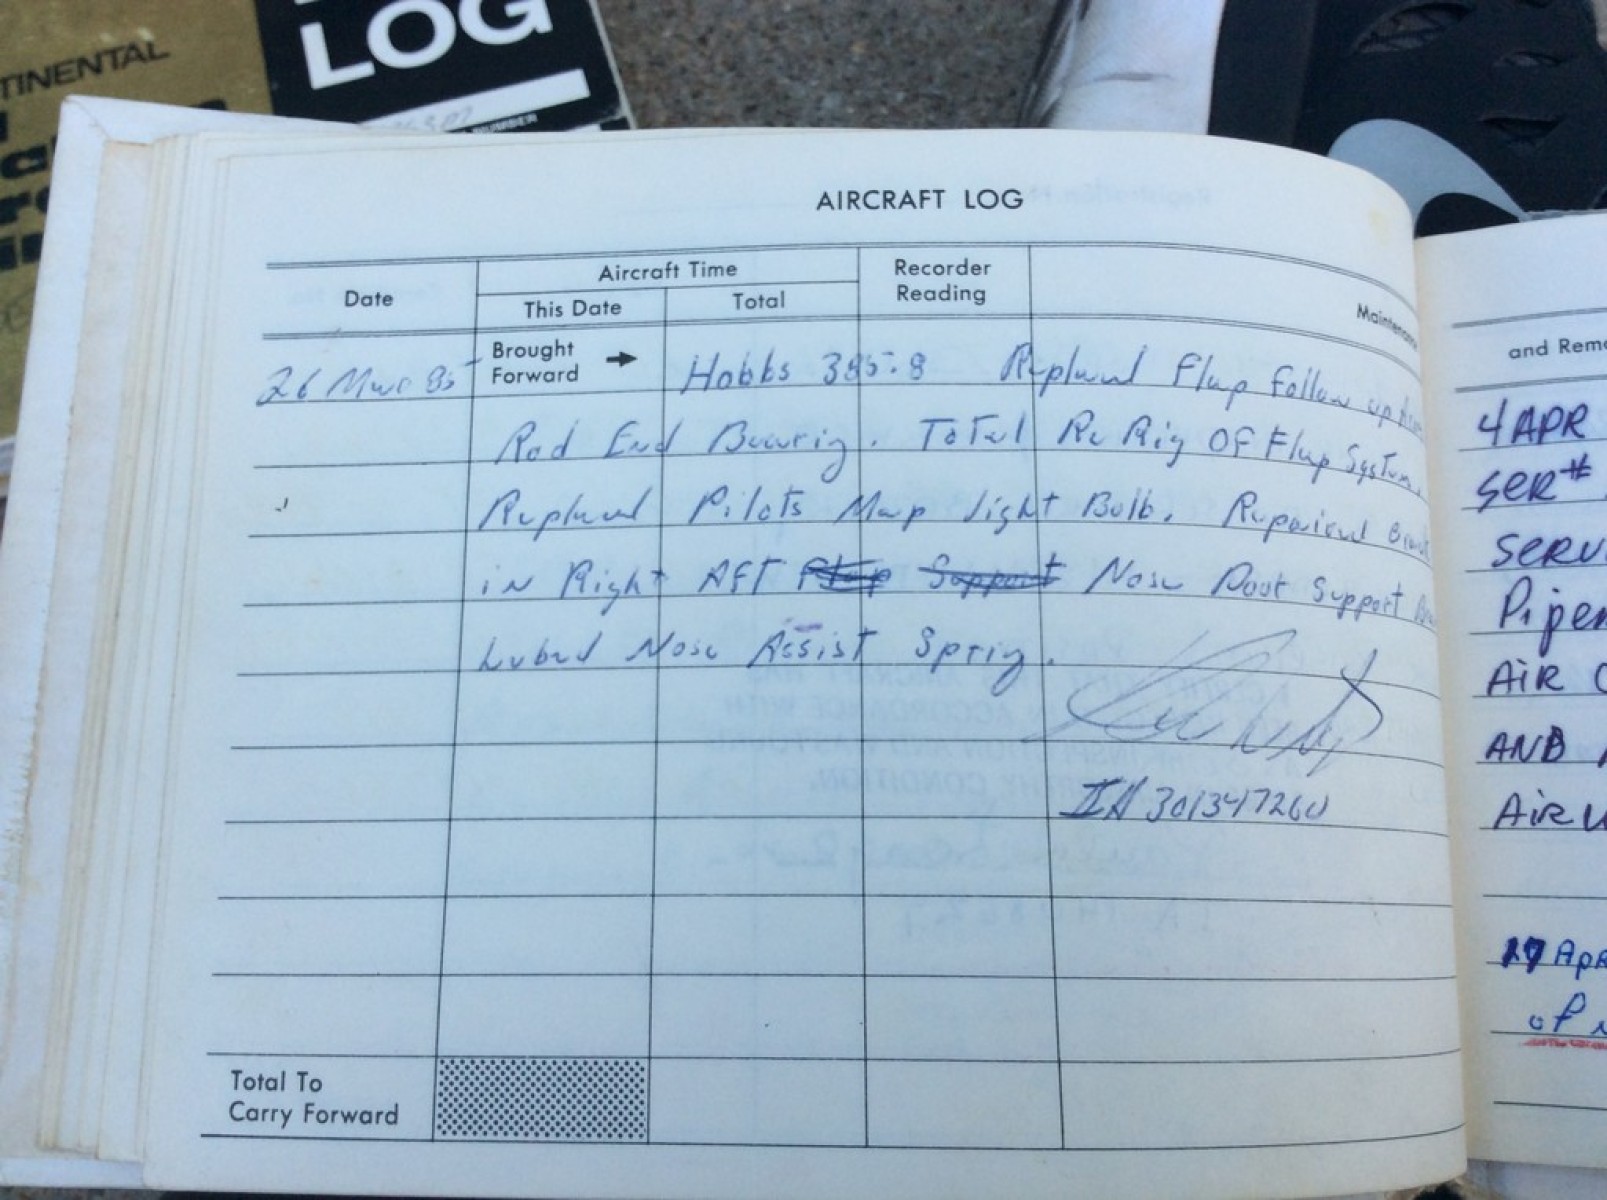 TINENTAL
LOG
NUMBER
AIRCRAFT LOG
Date
Aircraft Time
This Date
Total
Recorder
Reading
Maintenance
and Rema
Brought
Forward
26 Mar 85 Hobbs 385.8 Replaced Flap Follow up
Rod End Bearig. Total Re Rig OF Flap System.
Replaced Pilots Map light Bulb. Repaired
in Right AFT Flap Support Nose Door Support
Lubed Nose Assist Sprig.
IA 301347260
Total To
Carry Forward
4 APR
SER#
SERV
Piper
AIR
AND
AIR
17 Apr
of